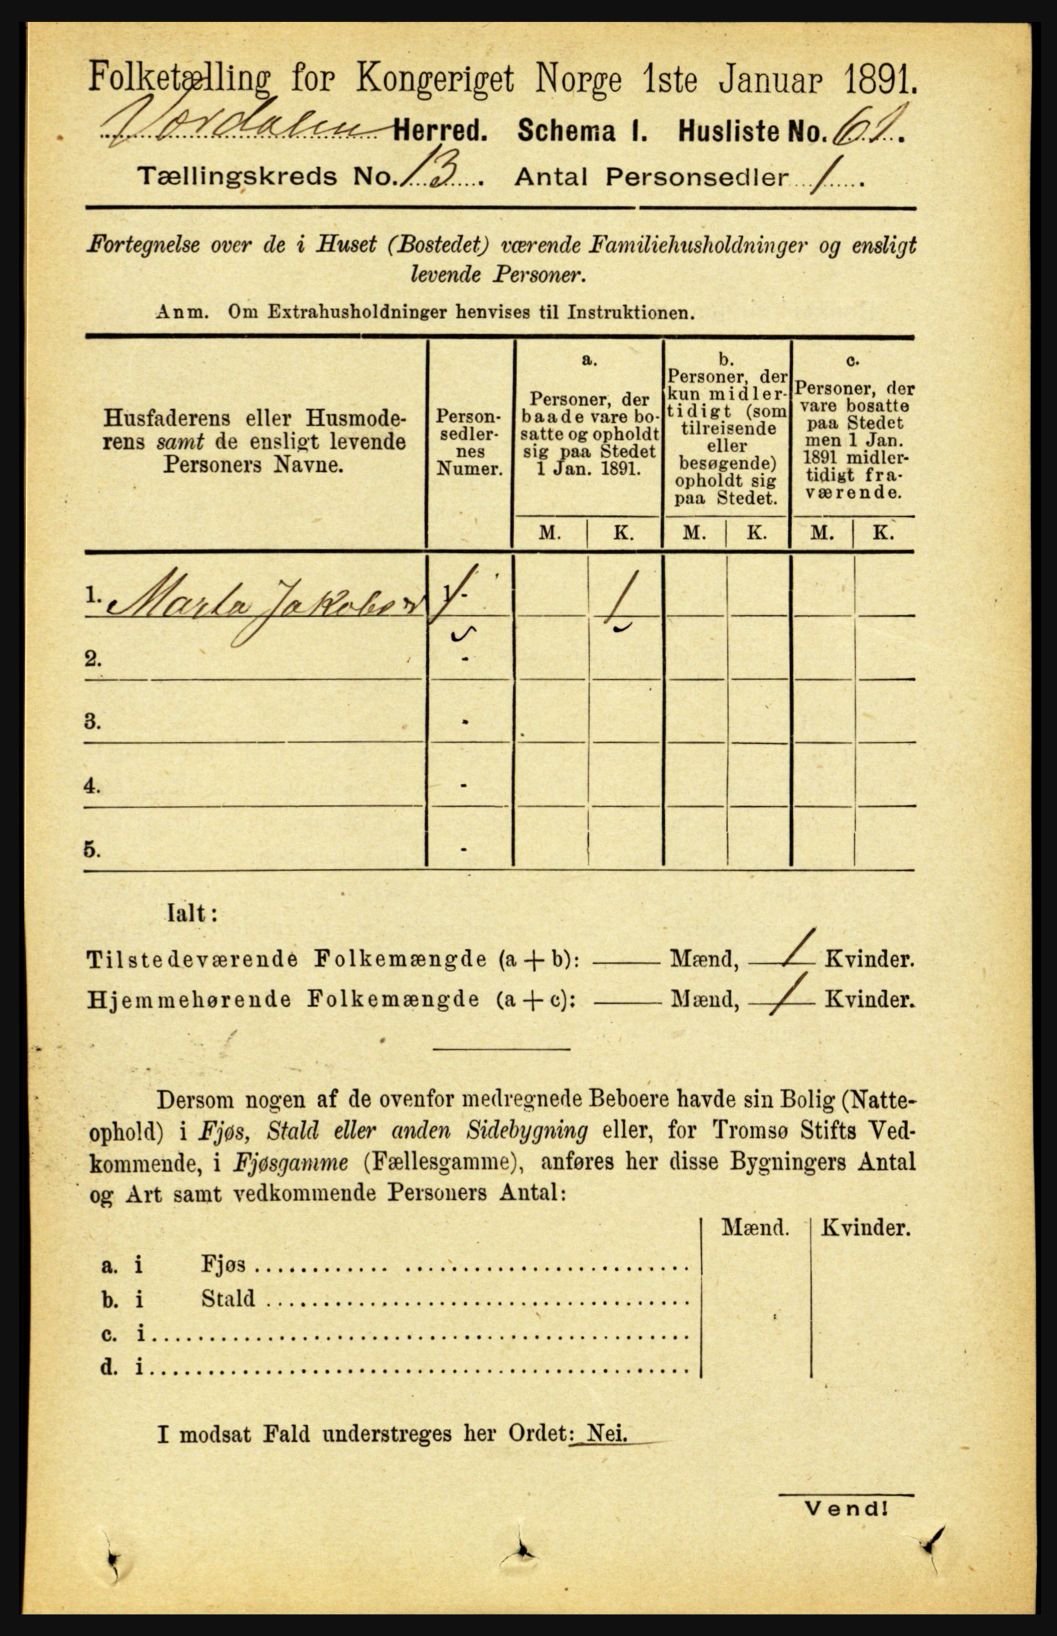 Folketælling for Kongeriget Norge 1ste Januar 1891.
Værdalen Herred. Schema I. Husliste No. 61.
Tællingskreds No. 13. Antal Personsedler 1.
Fortegnelse over de i Huset (Bostedet) værende Familiehusholdninger og ensligt
levende Personer.
Anm. Om Extrahusholdninger henvises til Instruktionen.
Husfaderens eller Husmode-
rens samt de ensligt levende
Personers Navne.
Person-
sedler-
nes
Numer.
a.
Personer, der
baade vare bo-
satte og opholdt
sig paa Stedet
1 Jan. 1891.
b.
Personer, der
kun midler-
tidigt (som
tilreisende
eller
besøgende)
opholdt sig
paa Stedet.
c.
Personer, der
vare bosatte
paa Stedet
men 1 Jan.
1891 midler-
tidigt fra-
værende.
M. K. M. K. M. K.
1. Marta Jakobsd 1 1
2. -
3. -
4. -
5. -
Ialt:
Tilstedeværende Folkemængde (a + b): — Mænd, 1 Kvinder.
Hjemmehørende Folkemængde (a + c): — Mænd, 1 Kvinder.
Dersom nogen af de ovenfor medregnede Beboere havde sin Bolig (Natte-
ophold) i Fjøs, Stald eller anden Sidebygning eller, for Tromsø Stifts Ved-
kommende, i Fjøsgamme (Fællesgamme), anføres her disse Bygningers Antal
og Art samt vedkommende Personers Antal:
Mænd. Kvinder.
a. i Fjøs
b. i Stald
c. i
d. i
I modsat Fald understreges her Ordet: Nei.
Vend!